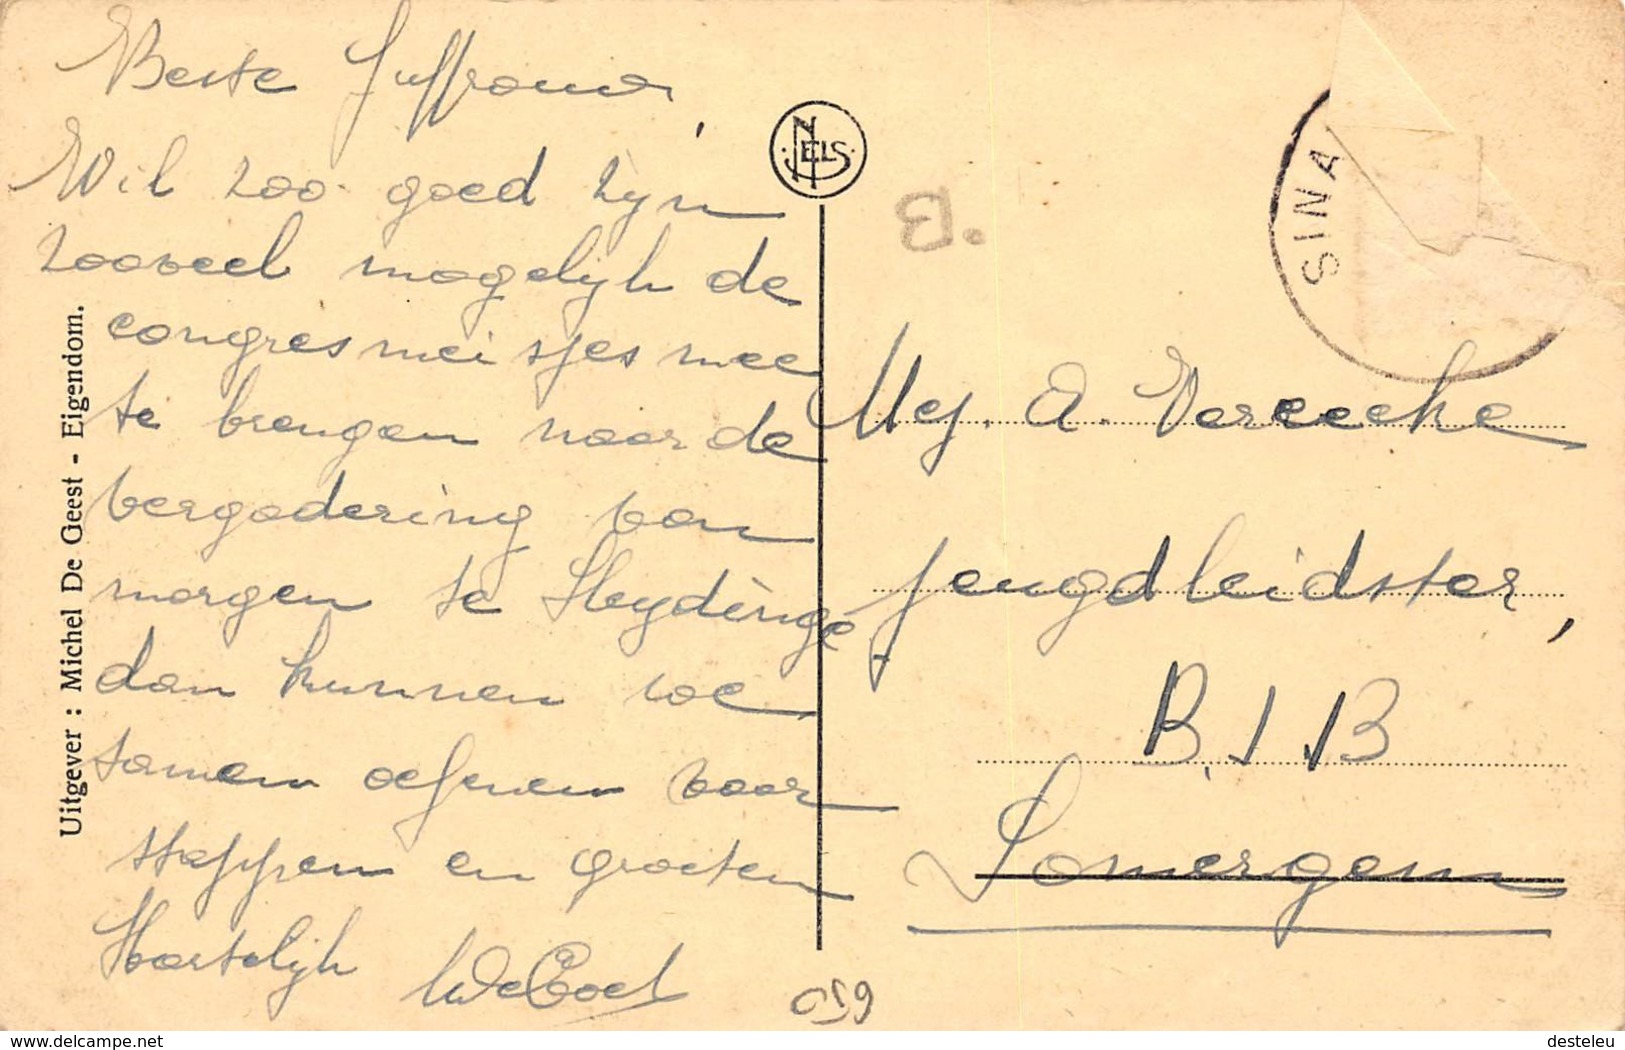 Beste Juffrouw,
Wil zoo goed zijn
zooveel mogelijk de
congresmeisjes mee
te brengen naar de
vergadering van
morgen te Sleydinge
dan kunnen we
samen oefenen voor
stappen en groeten
Hartelijk
NELS
B.
SINA
Mej. A. Vereecke
jeugdleidster,
B.J.B
Somergem
059
Uitgever : Michel De Geest - Eigendom.
www.delcampe.net
desteleu